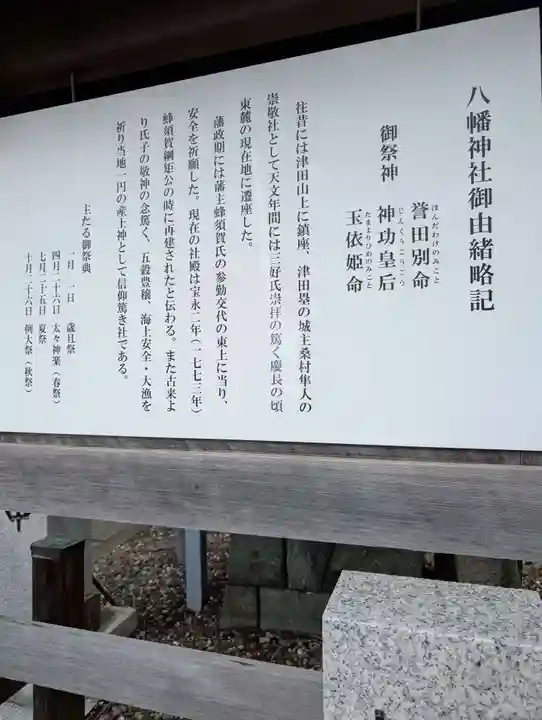 八幡神社御由緒略記
誉田別命
ほんだわけのみこと
御祭神 神功皇后
じんぐうこうごう
玉依姫命
たまよりひめのみこと
往昔には津田山上に鎮座、津田塁の城主桑村隼人の
崇敬社として天文年間には三好氏崇拝の篤く慶長の頃
東麓の現在地に遷座した。
藩政期には藩主蜂須賀氏の参勤交代の東上に当り、
安全を祈願した。現在の社殿は宝永二年(一七七三年)
蜂須賀綱矩公の時に再建されたと伝わる。また古来よ
り氏子の敬神の念篤く、五穀豊穣、海上安全・大漁を
祈り当地一円の産土神として信仰篤き社である。
主たる御祭典
一月 一日 歳旦祭
四月二十六日 太々神楽(春祭)
七月二十五日 夏祭
十月二十六日 例大祭(秋祭)